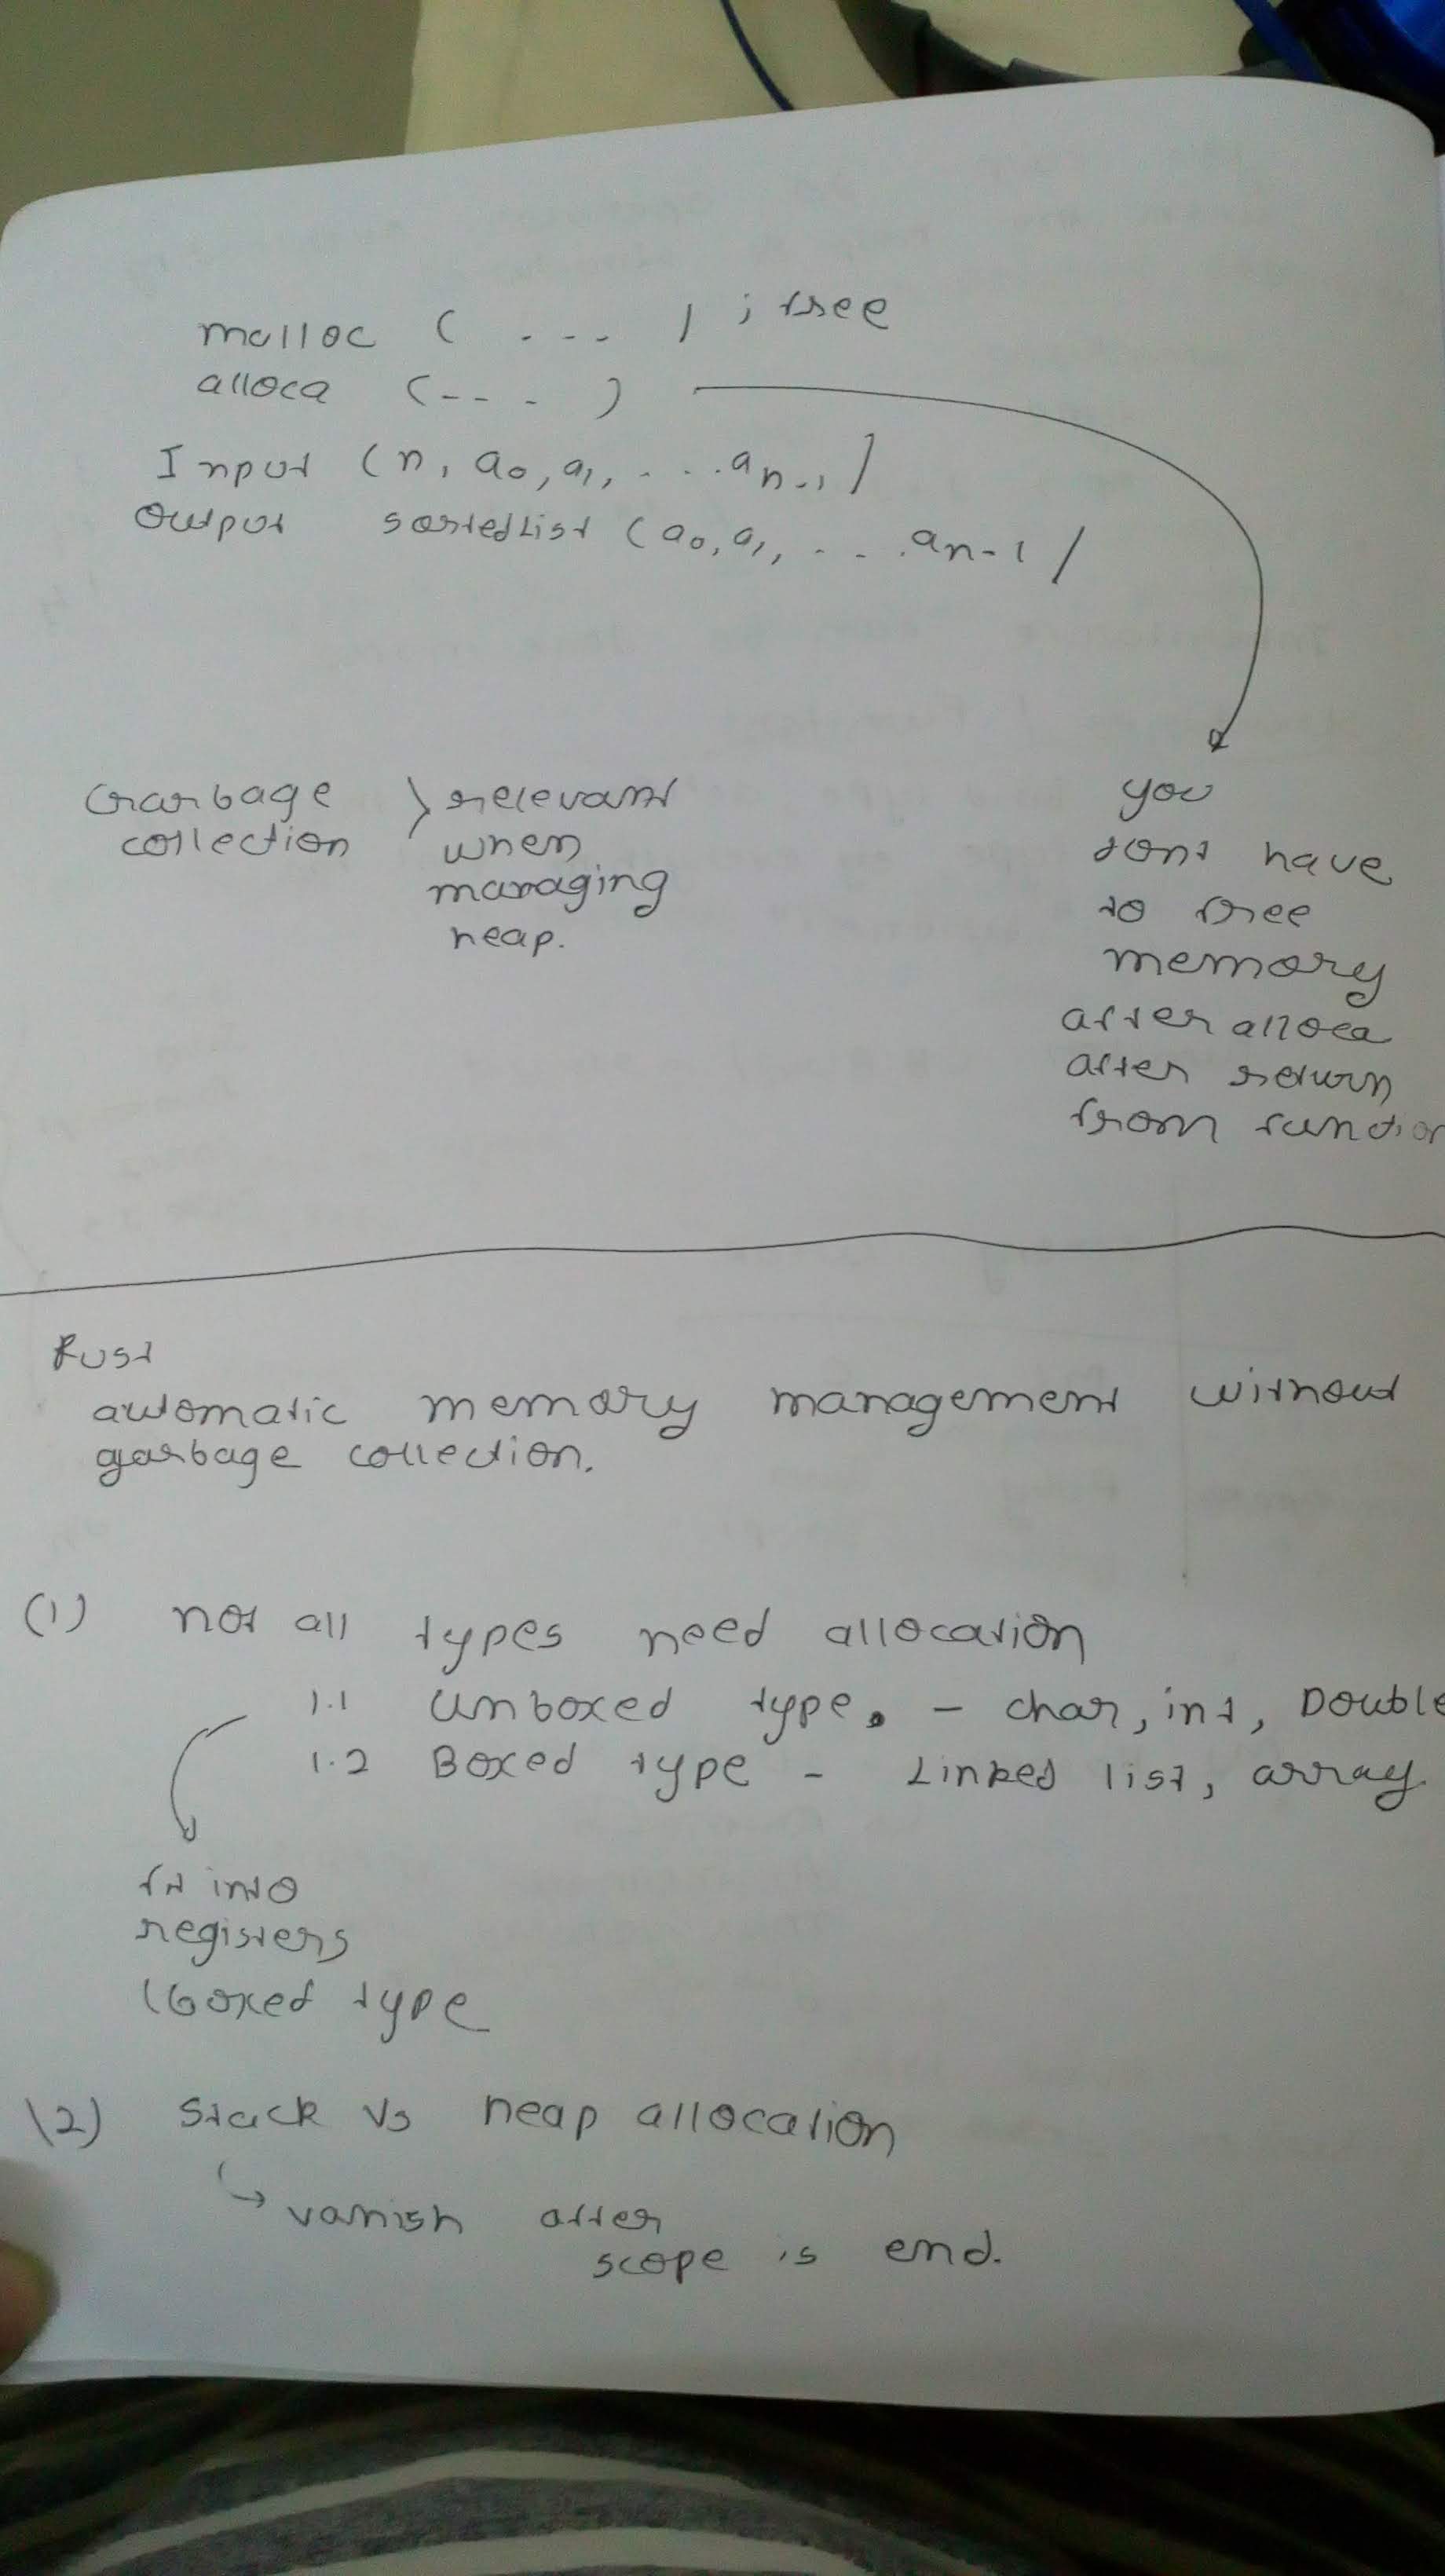 malloc ( - - - ) ; free
alloca (- - - )
Input (n, a0, a1, - - . an-1)
Output sortedList (a0, a1, - - . an-1)
Garbage } relevant
collection when
managing
heap.
you
dont have
to free
memory
after alloca
after return
from function
Rust
automatic memory management without
garbage collection.
(1) not all types need allocation
1.1 unboxed type. - char, int, Double
1.2 Boxed type - Linked list, array.
fit into
registers
(boxed type
(2) Stack Vs heap allocation
→ vanish after
scope is end.